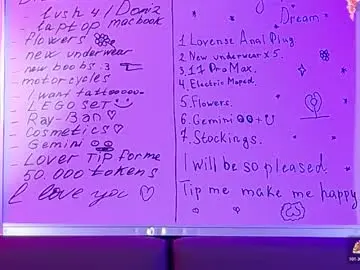 lush 4 / Domi2
- laptop macbook
- flowers
- new underwear
new boobs :3
- motorcycles
I want tattooooo-
- LEGO SET
- Ray-Ban
- Cosmetics
- Gemini
- Lover Tip for me
50.000 tokens
I love you
Dream
1 Lovense Anal Plug.
2 New underwear x 5.
3. 11 Pro Max.
4. Electric Moped.
5. Flowers.
6. Gemini + U
7. Stockings.
I will be so pleased.
Tip me make me happy